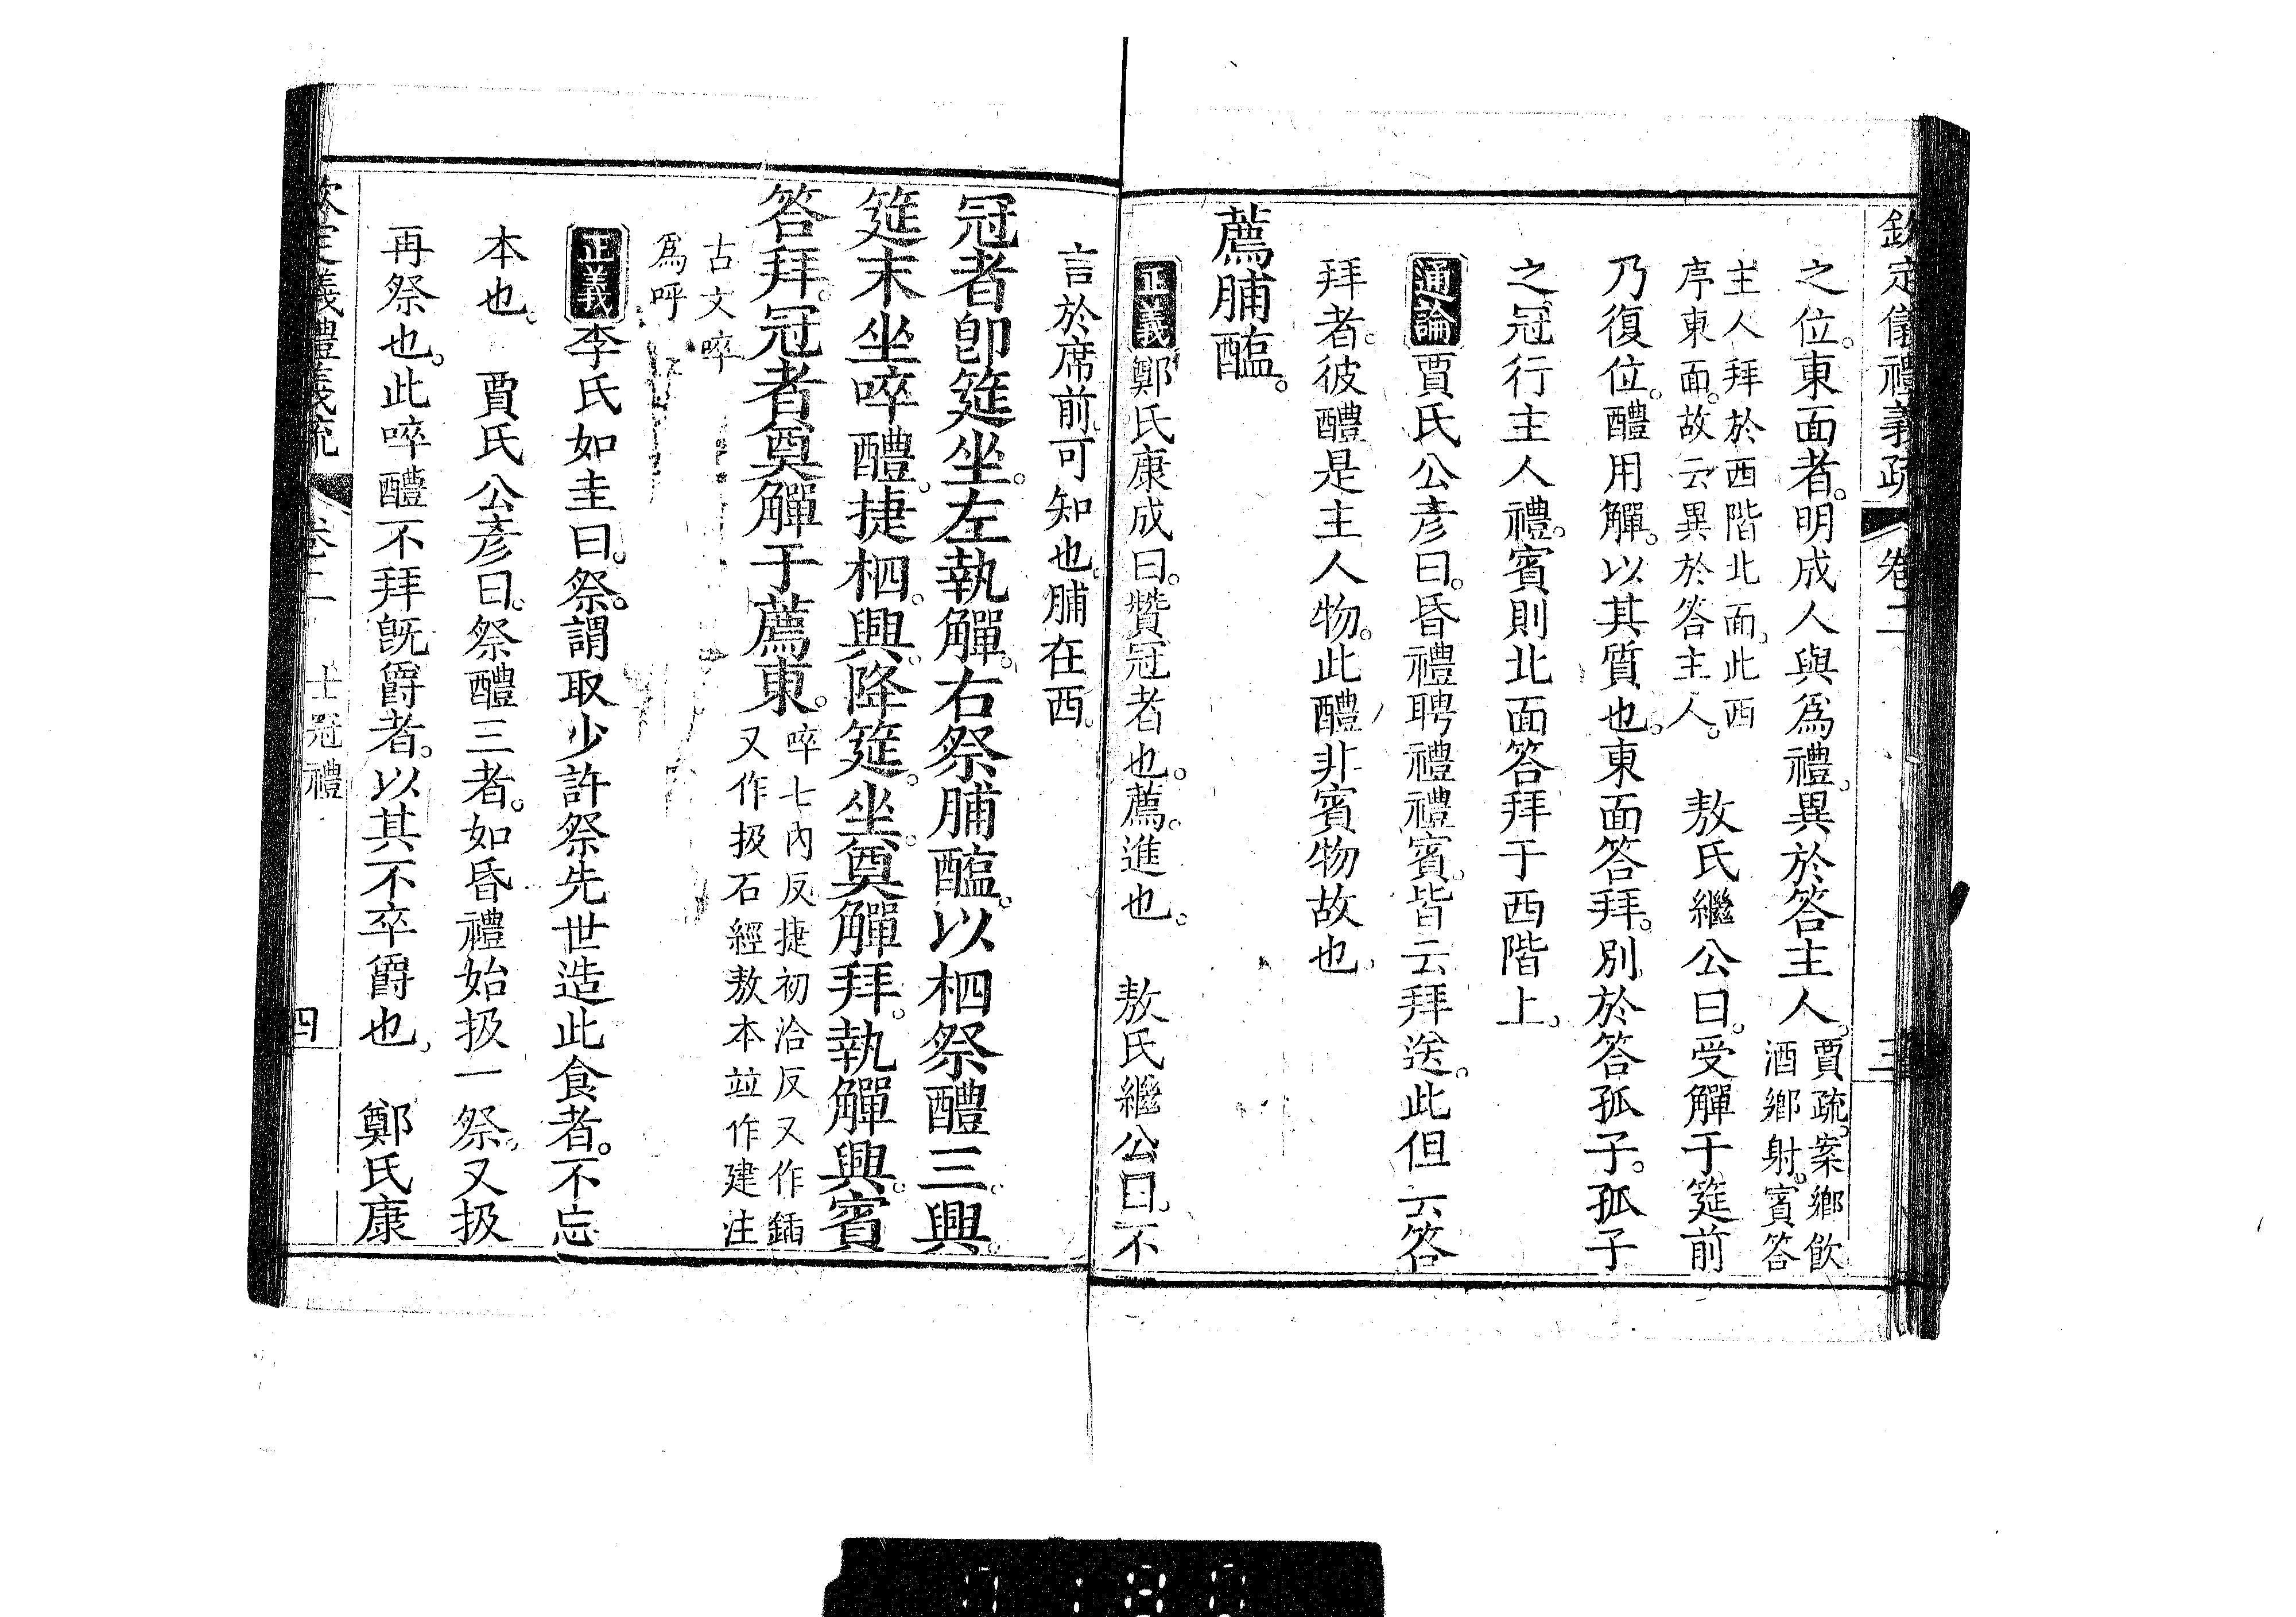 欽定儀禮義疏 卷二 三
之位。東面者。明成人與爲禮。異於答主人。賈疏。案鄉飲
酒鄉射。賓答
主人拜於西階北面。此西
序東面。故云異於答主人。 敖氏繼公曰。受觶于筵前
乃復位。醴用觶。以其質也。東面答拜。別於答孤子。孤子
之冠行主人禮。賓則北面答拜于西階上。
通論賈氏公彥曰。昏禮聘禮禮賓。皆云拜送。此但云答
拜者。彼醴是主人物。此醴非賓物故也。
薦脯醢。
正義鄭氏康成曰。贊冠者也。薦。進也。 敖氏繼公曰。不
言於席前。可知也。脯在西。
冠者卽筵坐。左執觶。右祭脯醢。以柶祭醴三。興。
筵末坐啐醴。捷柶。興。降筵。坐。奠觶拜。執觶興。賓
答拜。冠者奠觶于薦東。啐七內反捷初洽反又作鍤
又作扱石經敖本竝作建注
古文啐
爲呼
正義李氏如圭曰。祭。謂取少許祭先世造此食者。不忘
本也。 賈氏公彥曰。祭醴三者。如昏禮始扱一祭。又扱
再祭也。此啐醴不拜旣爵者。以其不卒爵也。 鄭氏康
欽定義禮義疏 卷二 士冠禮 四